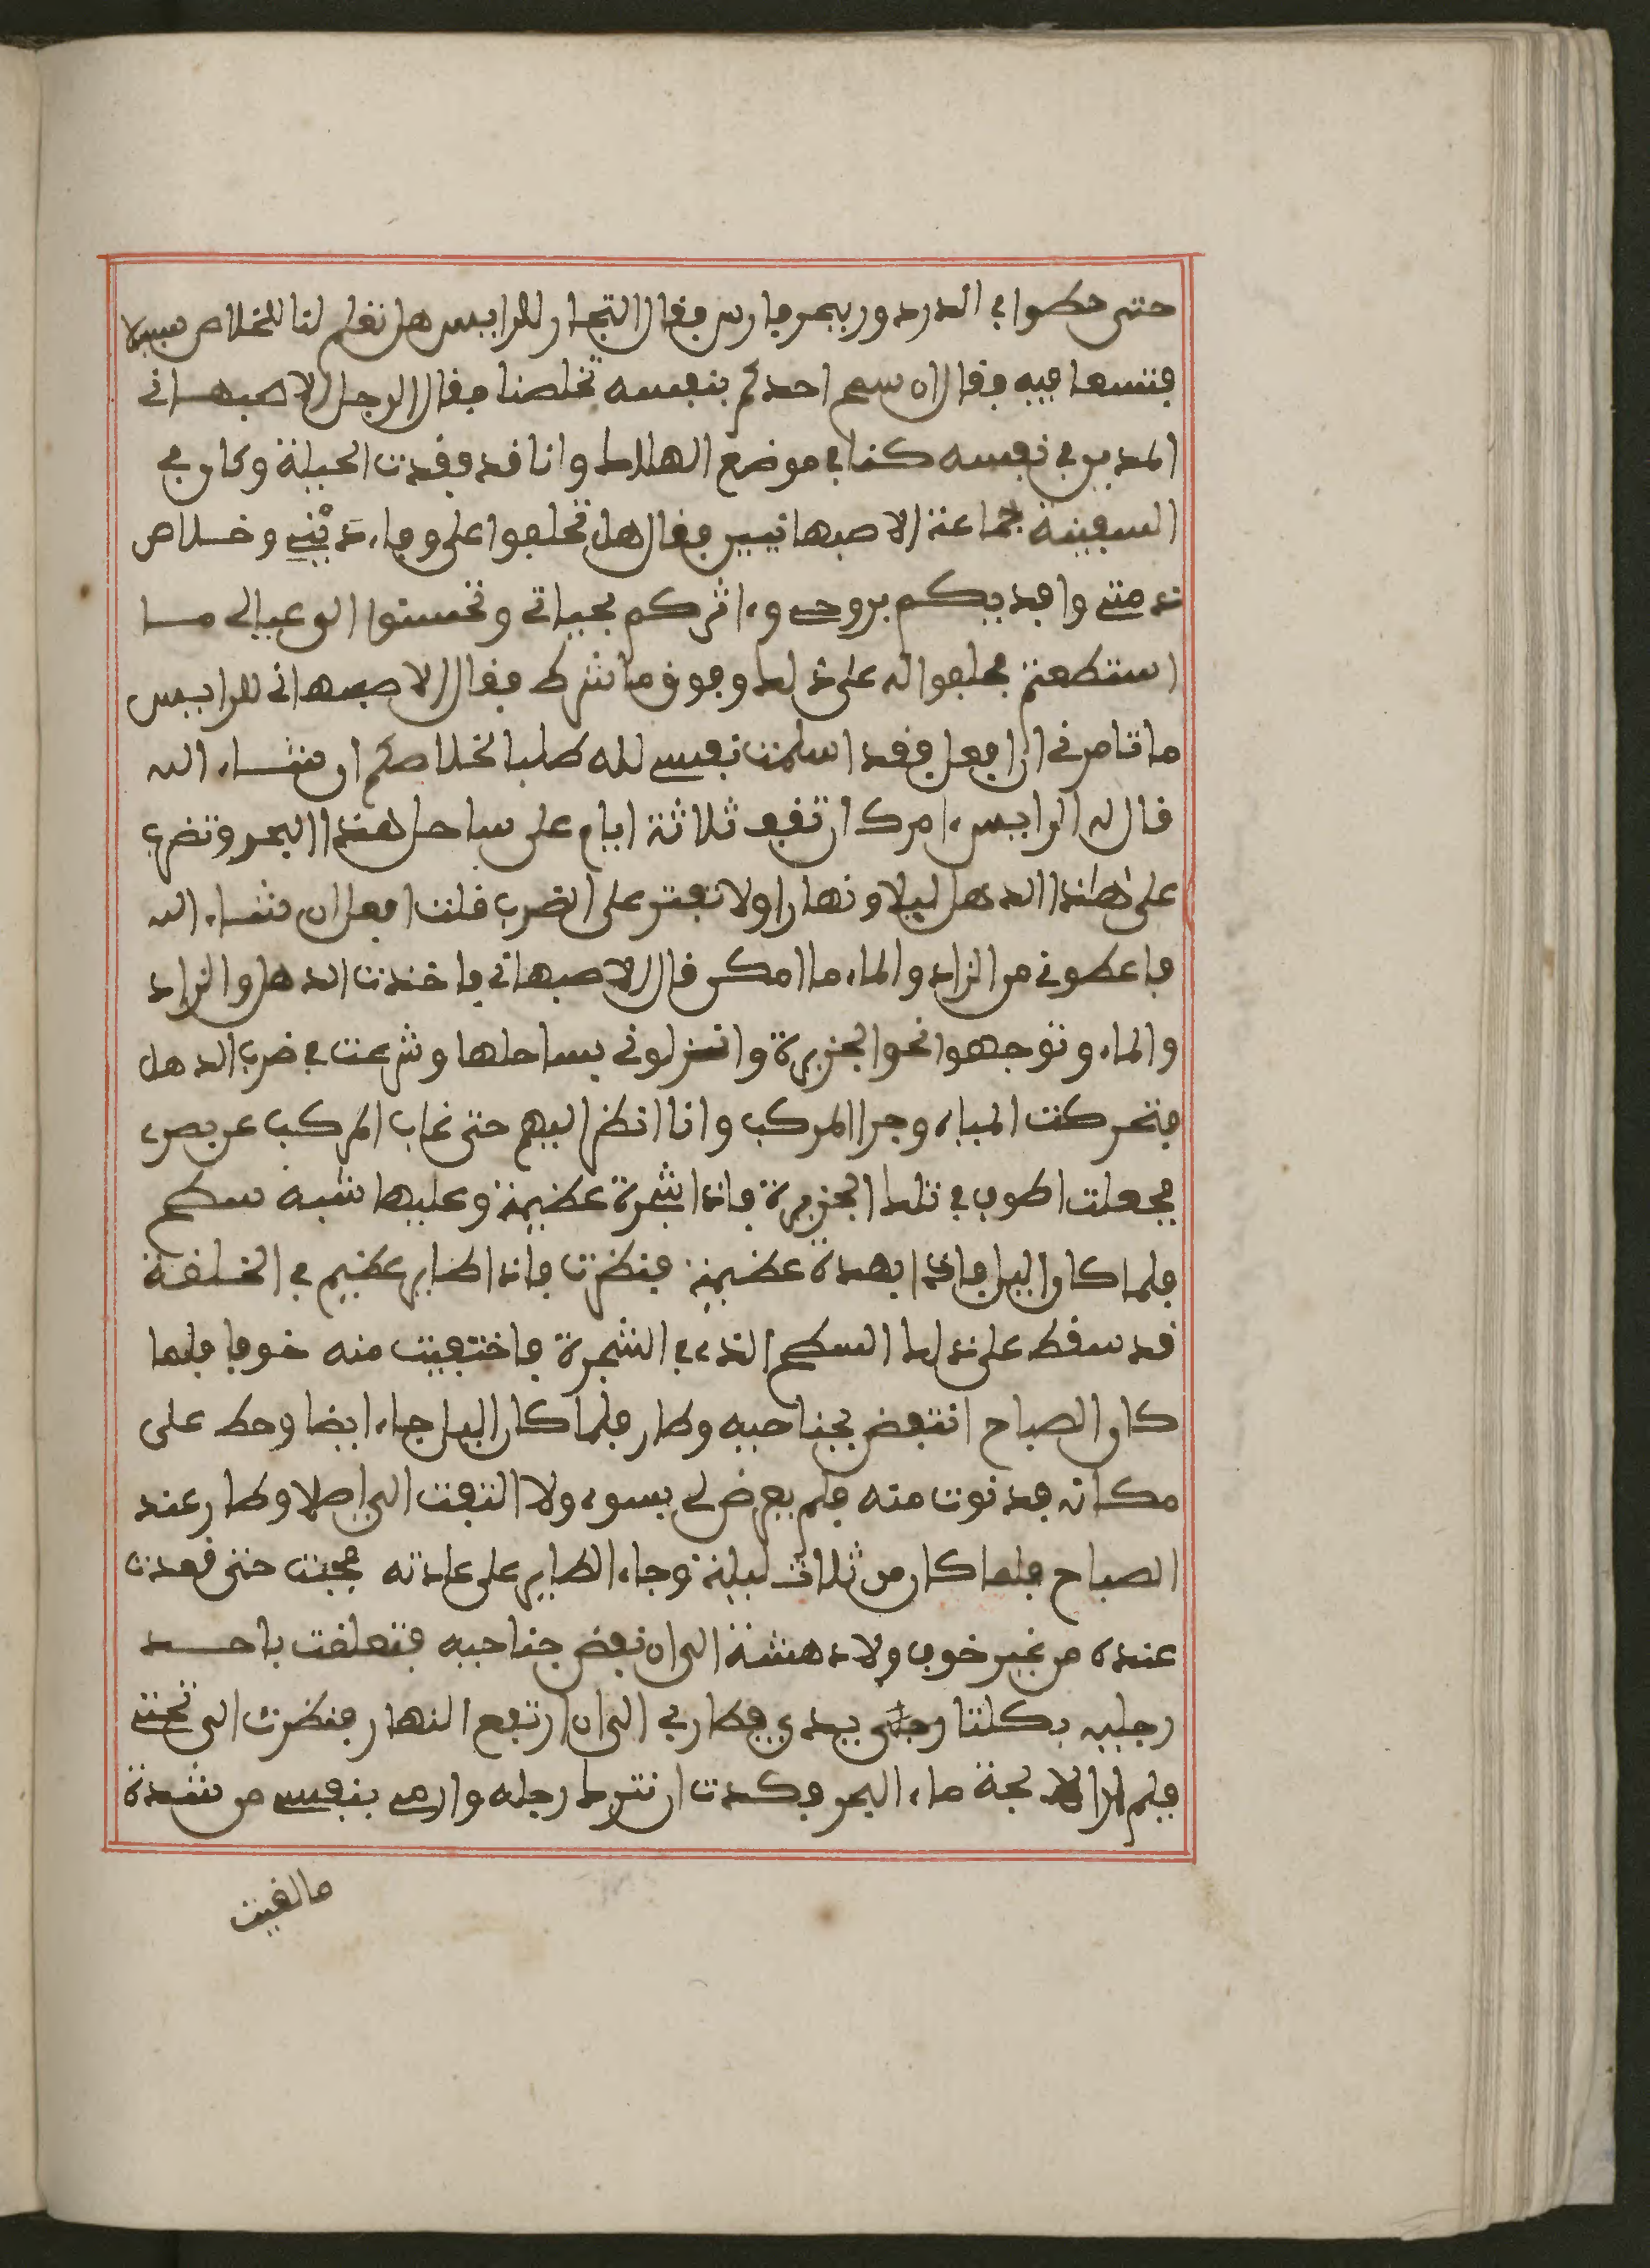 حتى حطوا في الدردور ببحر فارس فقال التجار للرايس هل تعلم لنا للخلاص سبيلا
فنسعا فيه فقال ان سمح احدكم بنفسه تخلصنا فقال الرجل الاصبهاني
المديون في نفسه كنا في موضع الهلاك وانا قد وفدت الحيلة وكان في
السفينة جماعة الاصبهانيين فقال هل تحلفوا على وفاء ديني وخلاص
ذمتي وافديكم بروحي وءاثركم بحياتي وتحسنوا الى عيالي مـا
استطعتم فحلفوا له على ذلك وفوق ما شرط فقال الاصبهاني للرايس
ما تامرني ان افعل فقد اسلمت نفسي لله طلبا لخلاصكم ان شاء الله
قال له الرايس ءامرك ان تقف ثلاثة ايام على ساحل هذا البحر وتضرب
على هذا الدهل ليلا ونهارا ولا تفتر على الضرب قلت افعل ان شاء الله
فاعطوني من الزاد والماء ما امكن قال الاصبهاني فاخذت الدهل والزاد
والماء وتوجهوا نحو الجزيرة وانزلوني بساحلها وشرعت في ضرب الدهل
فتحركت المياه وجرا المركب وانا انظر اليهم حتى غاب المركب عن بصري
فجعلت اطوف في تلك الجزيرة فاذا بشجرة عظيمة وعليها شبه سطح
فلما كان اليل فاذا بهدة عظيمة فنظرت فاذا طاير عظيم في الخلقة
قد سقط على ذلك السطح الذي في الشجرة فاختفيت منه خوفا فلما
كان الصباح انتفض بجناحيه وطار فلما كان اليل جاء ايضا وحط على
مكانه فدنوت منه فلم يعرض لي بسوء ولا التفت الي اصلا وطار عند
الصباح فلما كان من ثلاث ليلة وجاء الطاير على عادته فجئت حتى قعدت
عنده من غير خوف ولا دهشة الى ان نفض جناحيه فتعلقت باحـد
رجليه بكلتا يدي فطار بي الى ان ارتفع النهار فنظرت الى تحتي
فلم ارا الا لجة ماء البحر فكدت ان نترك رجله وارمي بنفسي من شدة
ما لقيت